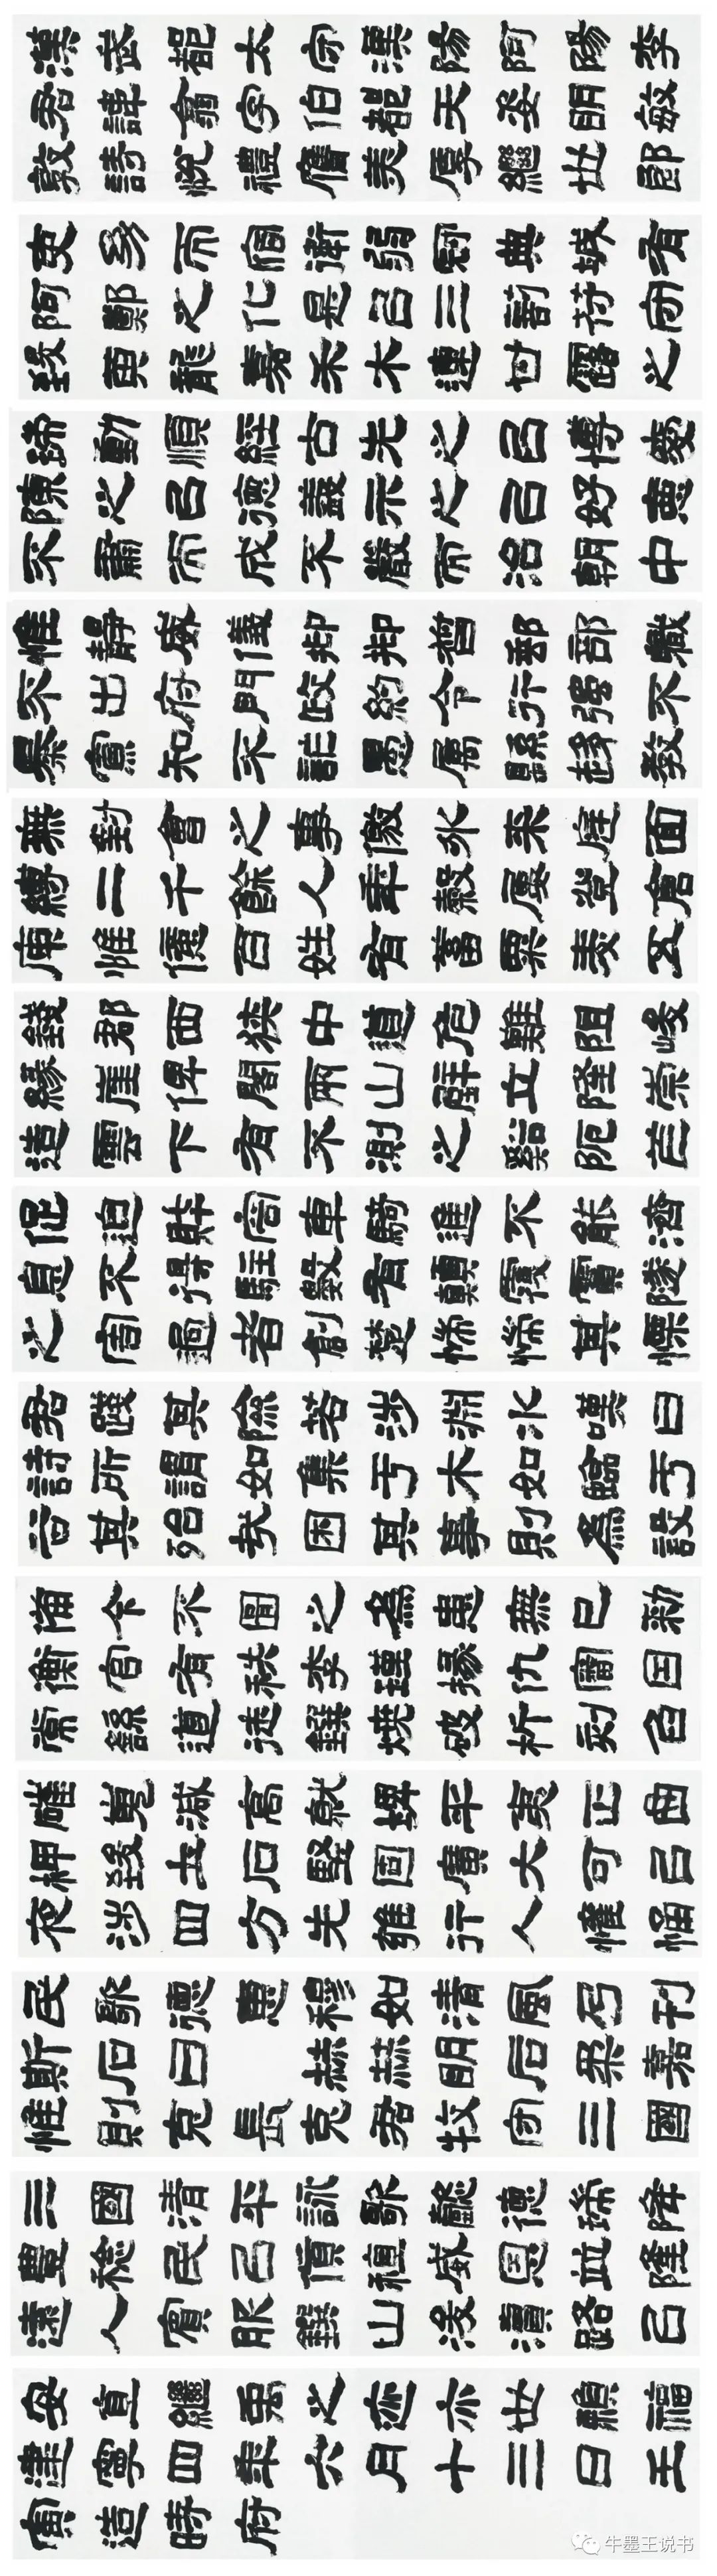 漢武都太守漢陽阿陽李
君諱翕字伯都天姿明敏
敦詩悅禮膺美厚繼世郎
吏幼而宿衛弱冠典城有
阿鄭之化是㠯三剖苻守
致黃龍嘉禾木連甘露之
瑞動順經古先之㠯博愛
陳之㠯德義示之㠯好惡
不肅而成不嚴而治朝中
惟靜威儀抑抑督郵部職
不出府門政約令行強不
暴寡知不詐愚屬縣趍教
無對會之事徼外來庭面
縛二千餘人年穀屢登倉
庾惟億百姓有蓄粟麦五
錢郡西狹中道危難阻峻
緣崖俾閣兩山壁立隆崇
造雲下有不測之谿阨芒
促迫財容車騎進不能濟
息不得駐數有顛覆霣隧
之害過者創楚惴惴其慄
君踐其險若涉淵冰嘆曰
詩所謂如集于木如臨于
谷其殆哉困其事則為設
備今不圖之為患無已敕
衡官有秩李瑾掾仇審因
常繇道徒鐉燒破析刻臽
磪嵬減高就埤平夷正曲
柙致土石堅固廣大可㠯
夜涉四方无雍行人懽悀
民歌德惠穆如清風乃刊
斯石曰赫赫明后柔嘉
惟則克長克君牧守三國
三國清平詠歌懿德瑞降
豐稔民㠯貨稙威恩並隆
遠人賓服鐉山浚瀆路㠯
安直繼禹之迹亦世賴福
建寧四年六月十三日壬
寅造時府
牛墨王说书